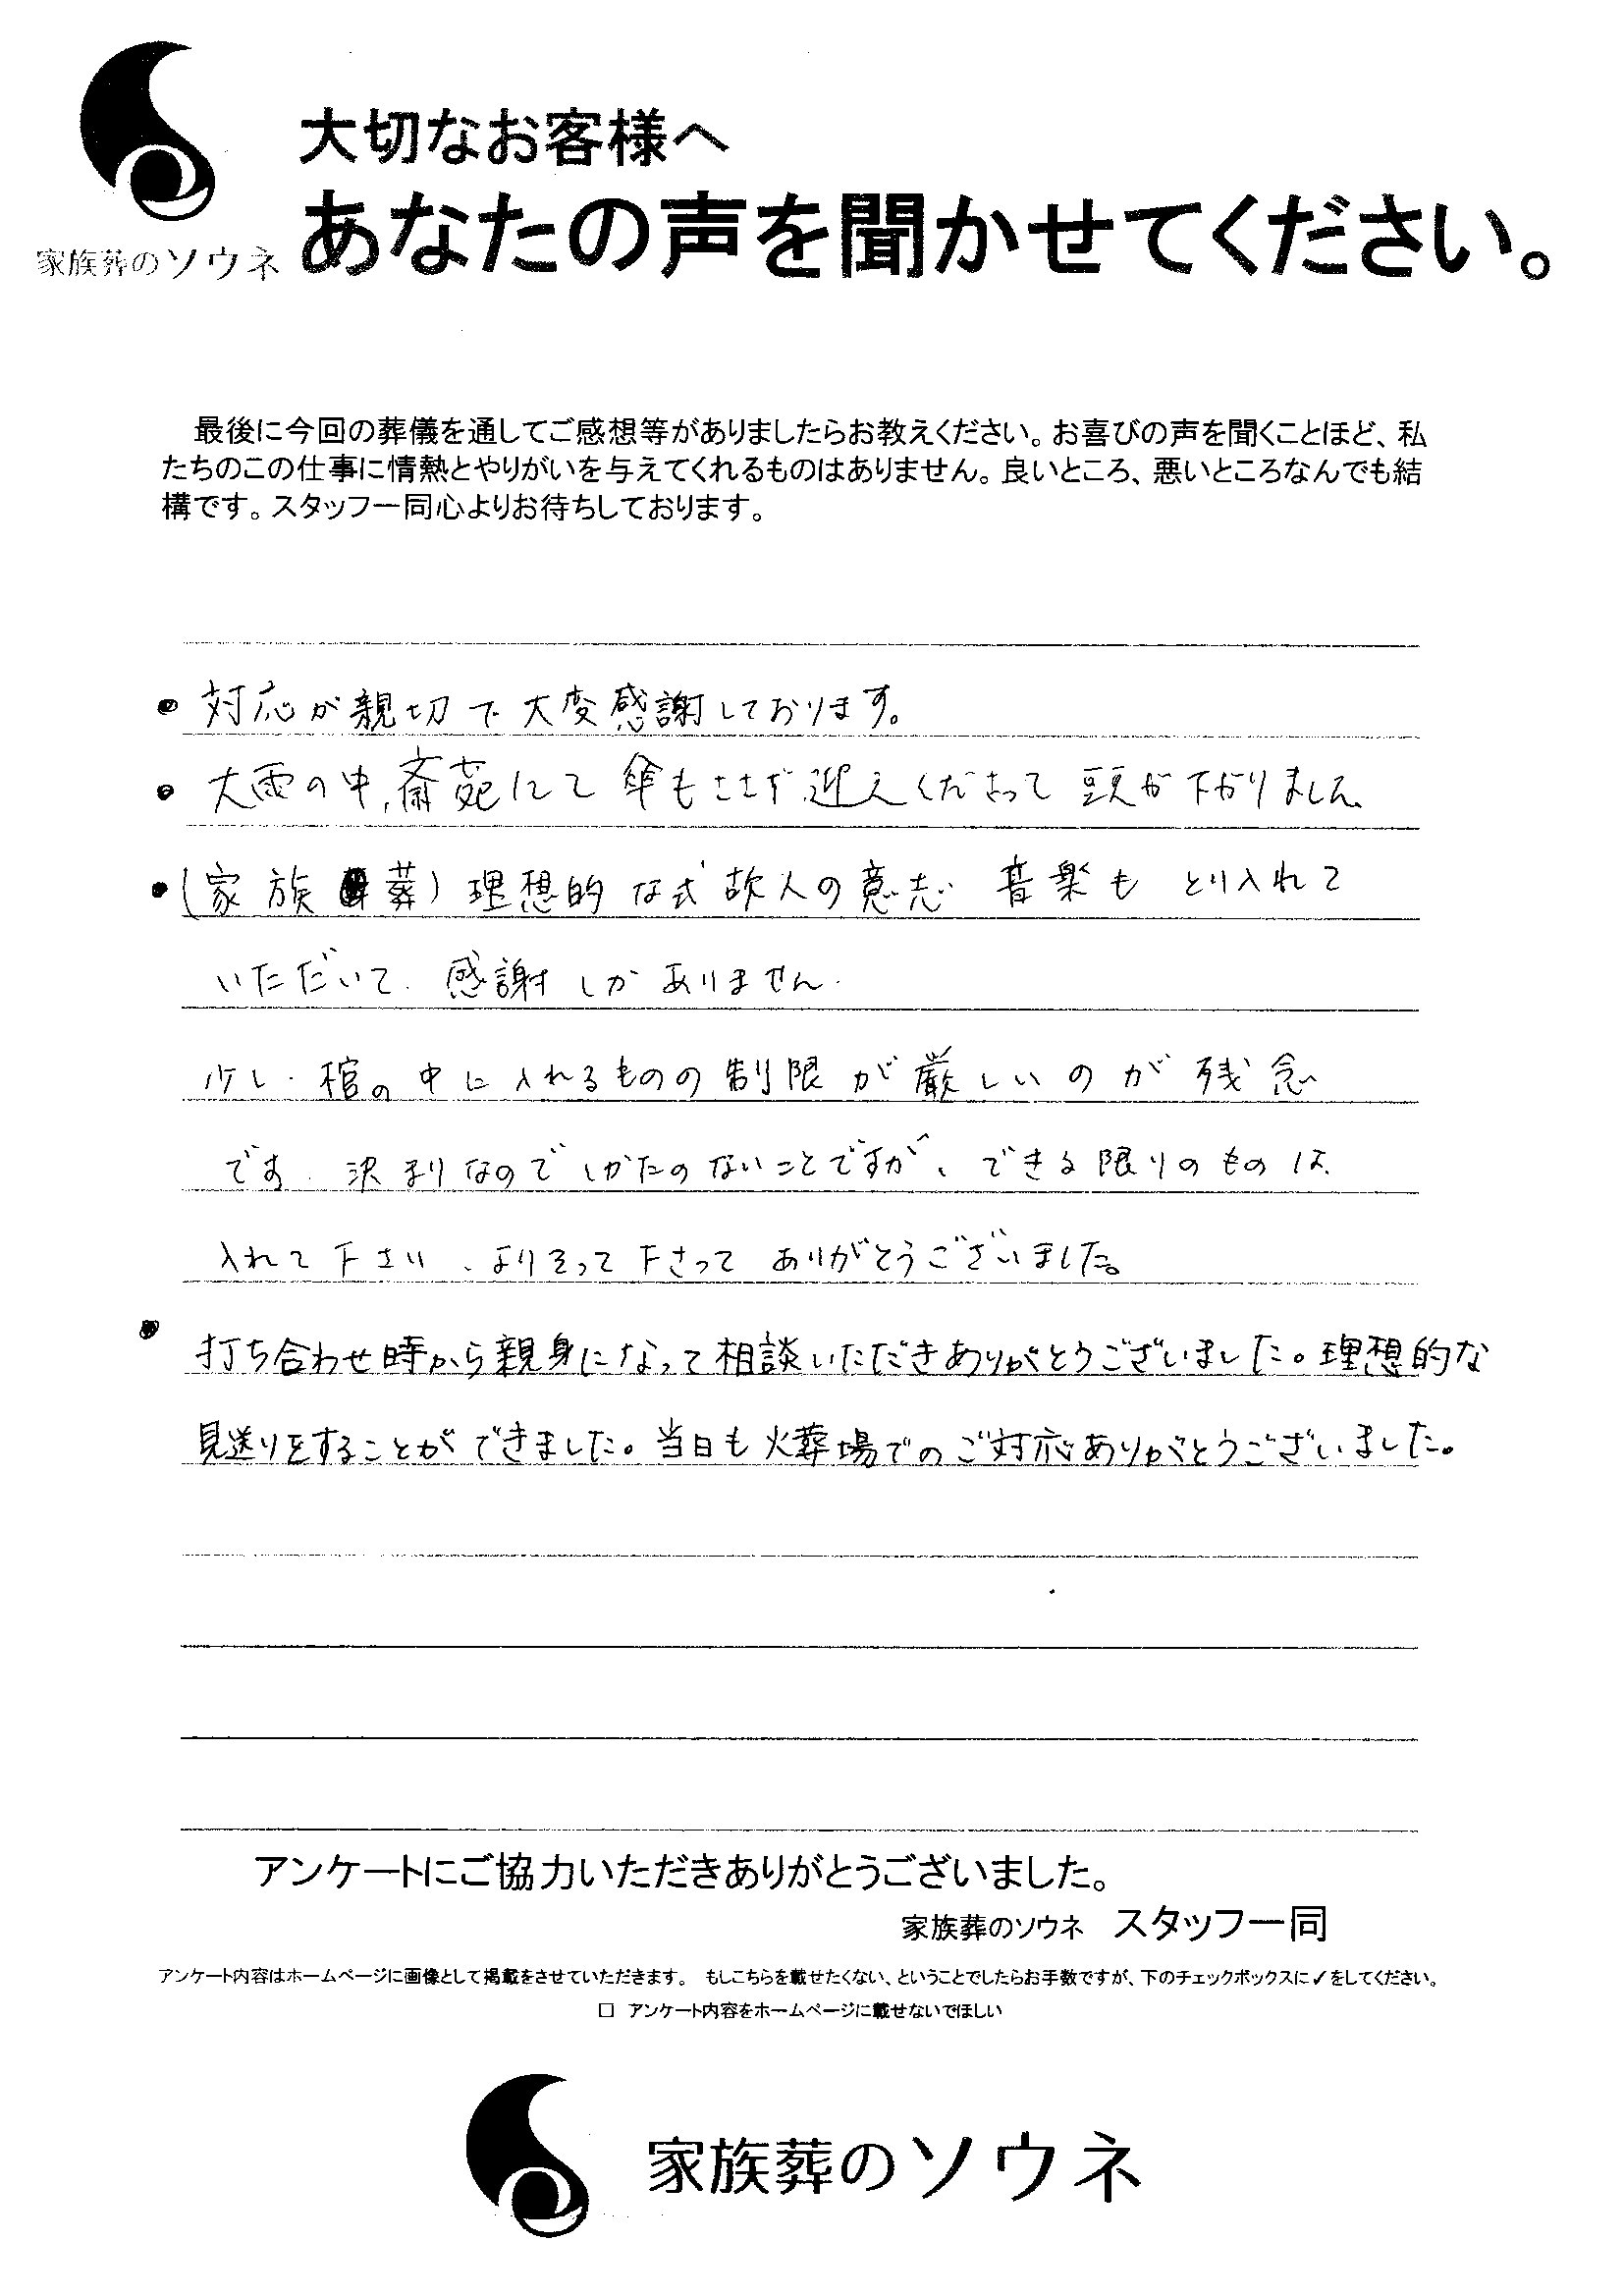 大切なお客様へ
家族葬のソウネ
あなたの声を聞かせてください。
最後に今回の葬儀を通してご感想等がありましたらお教えください。お喜びの声を聞くことほど、私
たちのこの仕事に情熱とやりがいを与えてくれるものはありません。良いところ、悪いところなんでも結
構です。スタッフ一同心よりお待ちしております。
• 対応が親切で大変感謝しております。
• 大雨の中,斎苑にて傘もささず迎えくださって頭が下がりました、
• (家族葬)理想的な式故人の意志 音楽も とり入れて
いただいて. 感謝しかありません.
少し.棺の中に入れるものの制限が厳しいのが残念
です.決まりなのでしかたのないことですが、できる限りのものは、
入れて下さり、よりそって下さって ありがとうございました。
• 打ち合わせ時から親身になって相談いただきありがとうございました。理想的な
見送りをすることができました。当日も火葬場でのご対応ありがとうございました。
アンケートにご協力いただきありがとうございました。
家族葬のソウネ スタッフ一同
アンケート内容はホームページに画像として掲載をさせていただきます。 もしこちらを載せたくない、ということでしたらお手数ですが、下のチェックボックスに✓をしてください。
□ アンケート内容をホームページに載せないでほしい
家族葬のソウネ